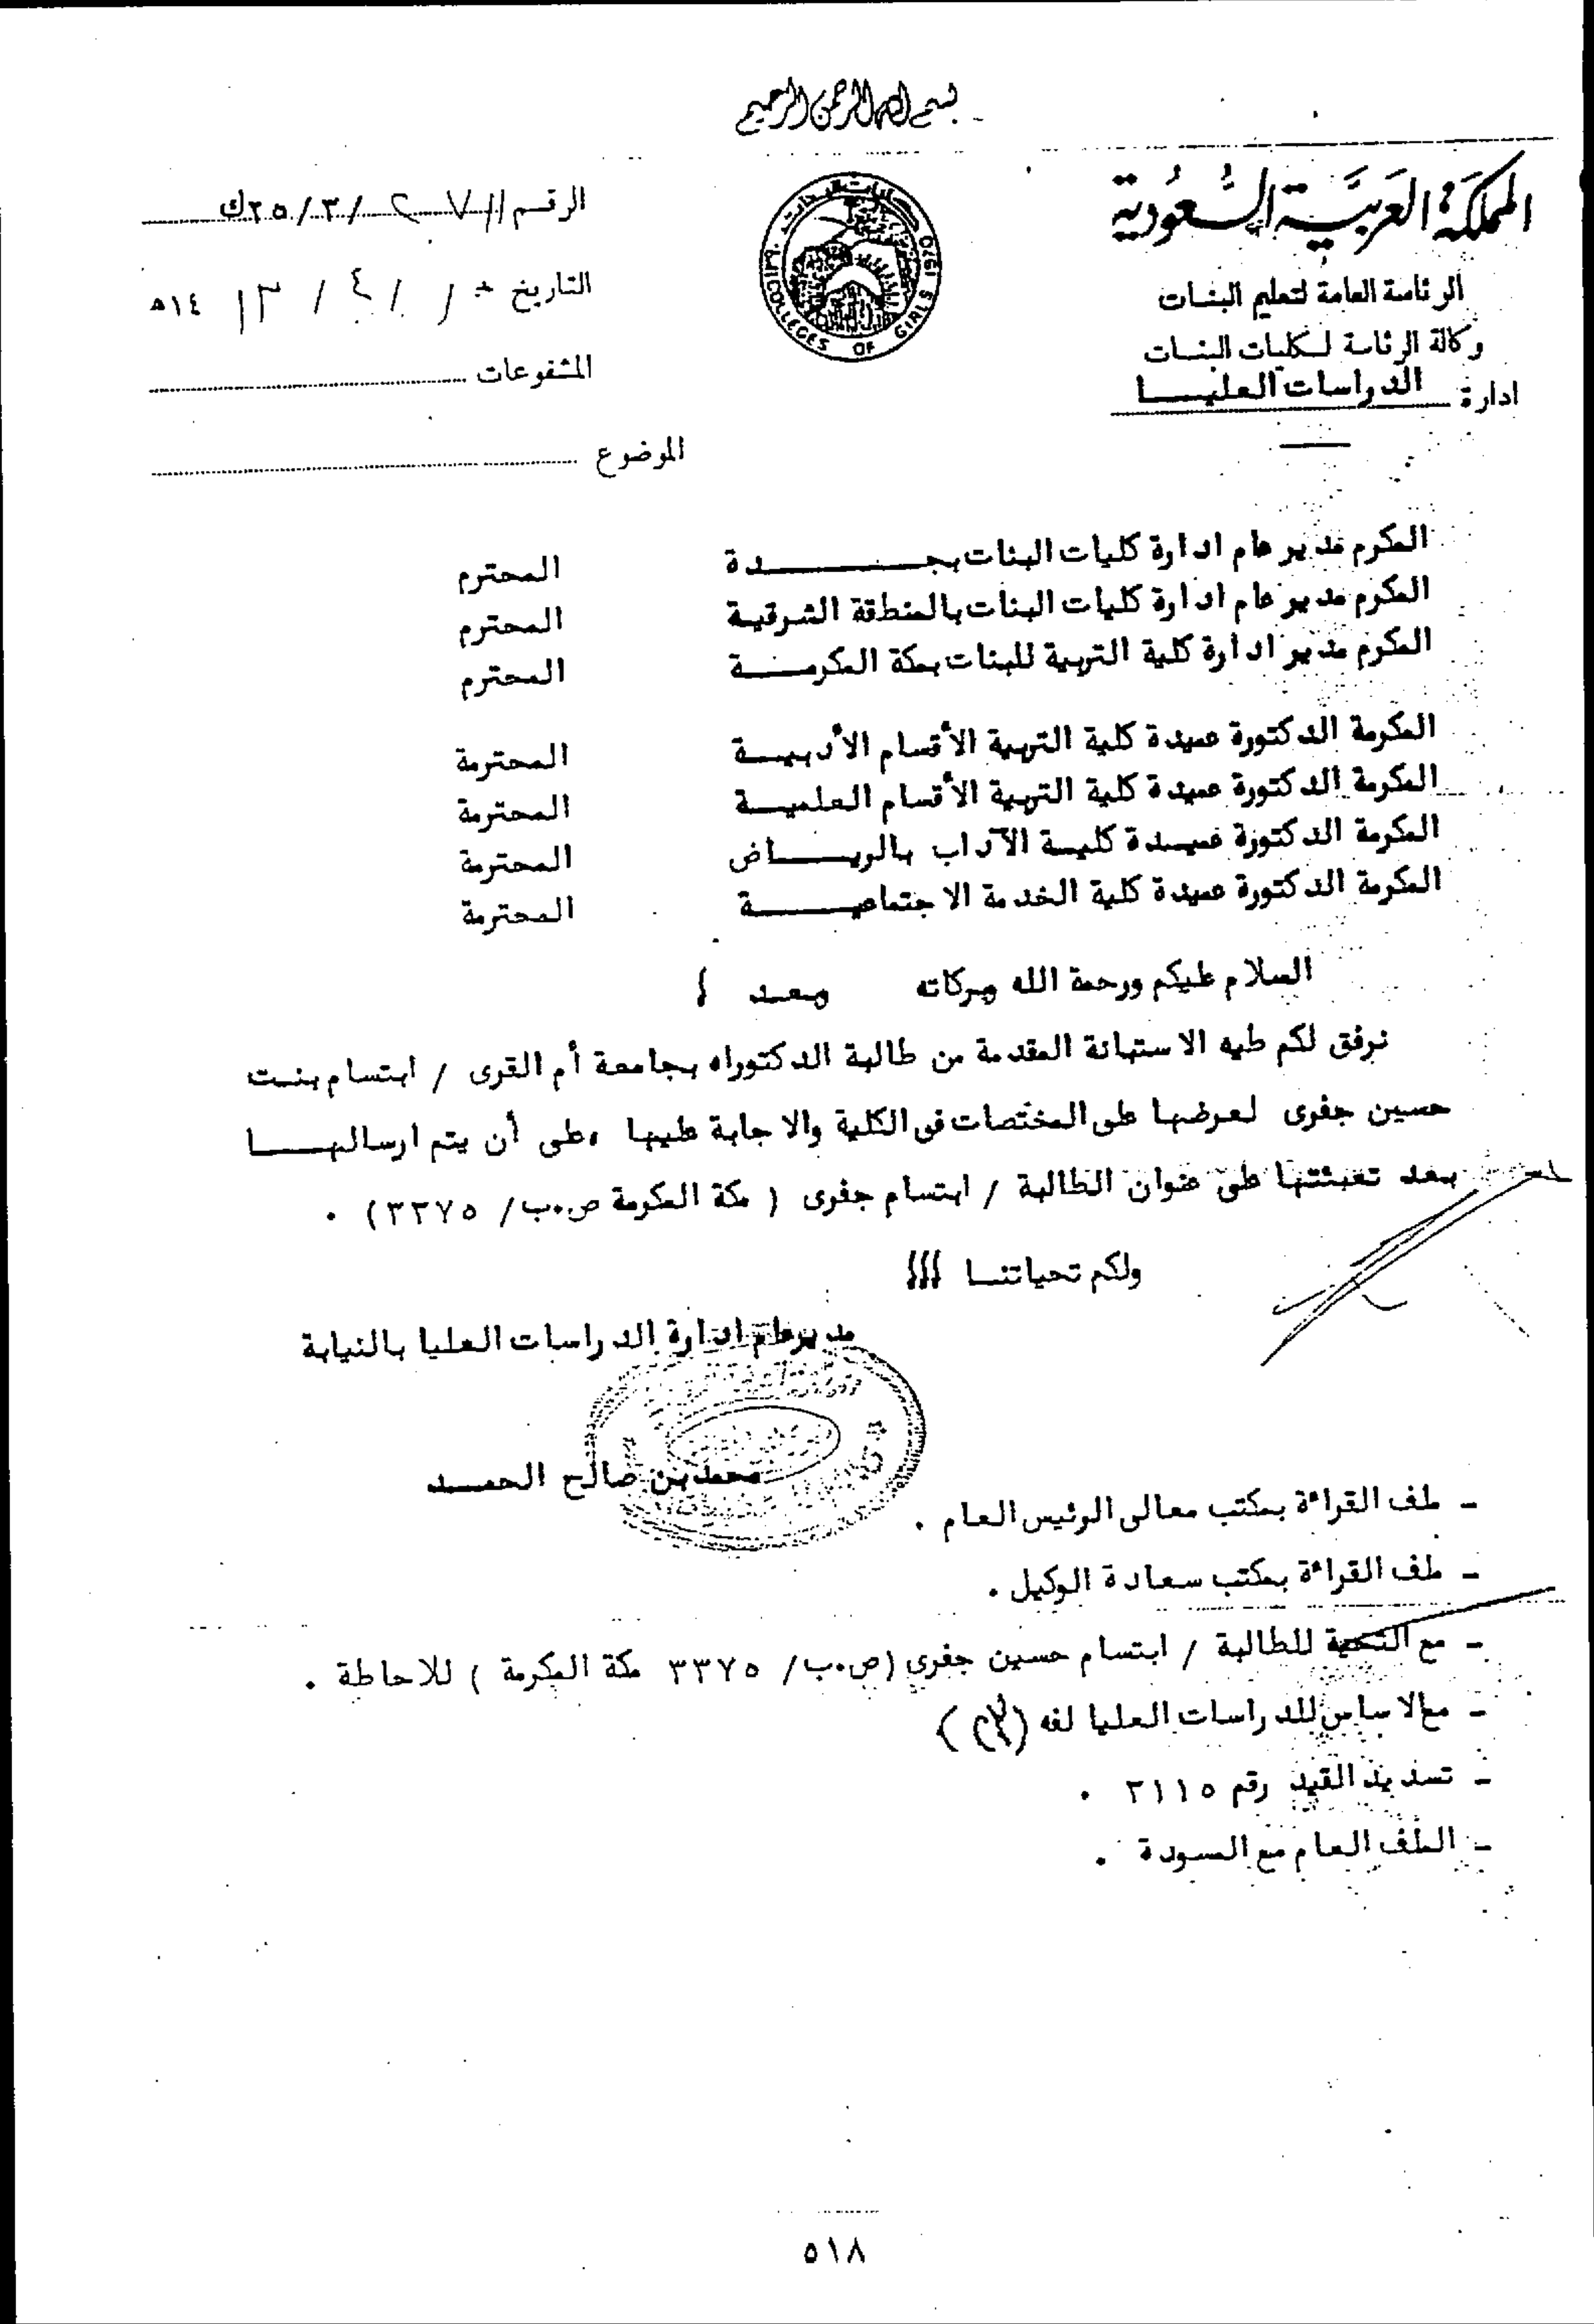 بسم الله الرحمن الرحيم
المملكة العربية السعودية
الرئاسة العامة لتعليم البنات
وكالة الرئاسة لكليات البنات
ادارة الدراسات العليا
COLLEGES OF GIRLS 1970
الرقم ٢٥/٣/ك
التاريخ ١٤هـ
المشفوعات
الموضوع
المكرم مدير عام ادارة كليات البنات بجدة المحترم
المكرم مدير عام ادارة كليات البنات بالمنطقة الشرقية المحترم
المكرم مدير ادارة كلية التربية للبنات بمكة المكرمة المحترم
المكرمة الدكتورة عميدة كلية التربية الأقسام الأدبية المحترمة
المكرمة الدكتورة عميدة كلية التربية الأقسام العلمية المحترمة
المكرمة الدكتورة عميدة كلية الآداب بالرياض المحترمة
المكرمة الدكتورة عميدة كلية الخدمة الاجتماعية المحترمة
السلام عليكم ورحمة الله وبركاته وبعد /
نرفق لكم طيه الاستبانة المقدمة من طالبة الدكتوراه بجامعة أم القرى / ابتسام بنت
حسين جفرى لعرضها على المختصات فى الكلية والاجابة عليها ، على أن يتم ارسالها
بعد تعبئتها على عنوان الطالبة / ابتسام جفرى ( مكة المكرمة ص.ب/ ٣٣٧٥) .
ولكم تحياتنا ///
مدير عام ادارة الدراسات العليا بالنيابة
محمد بن صالح الحمد
ـ ملف القراءة بمكتب معالى الرئيس العام .
ـ ملف القراءة بمكتب سعادة الوكيل .
ـ مع التحية للطالبة / ابتسام حسين جفرى (ص.ب/ ٣٣٧٥ مكة المكرمة ) للاحاطة .
ـ مع الاساس للدراسات العليا لفه
ـ تسديد القيد رقم ٢١١٥ .
ـ الملف العام مع المسودة .
٥١٨